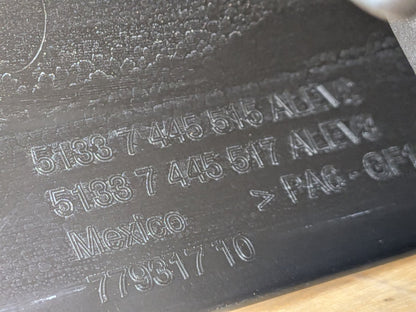 5133 7 445 515 ALEV3
5133 7 445 517 ALEV3
Mexico > PA6 - GF1
779317 10